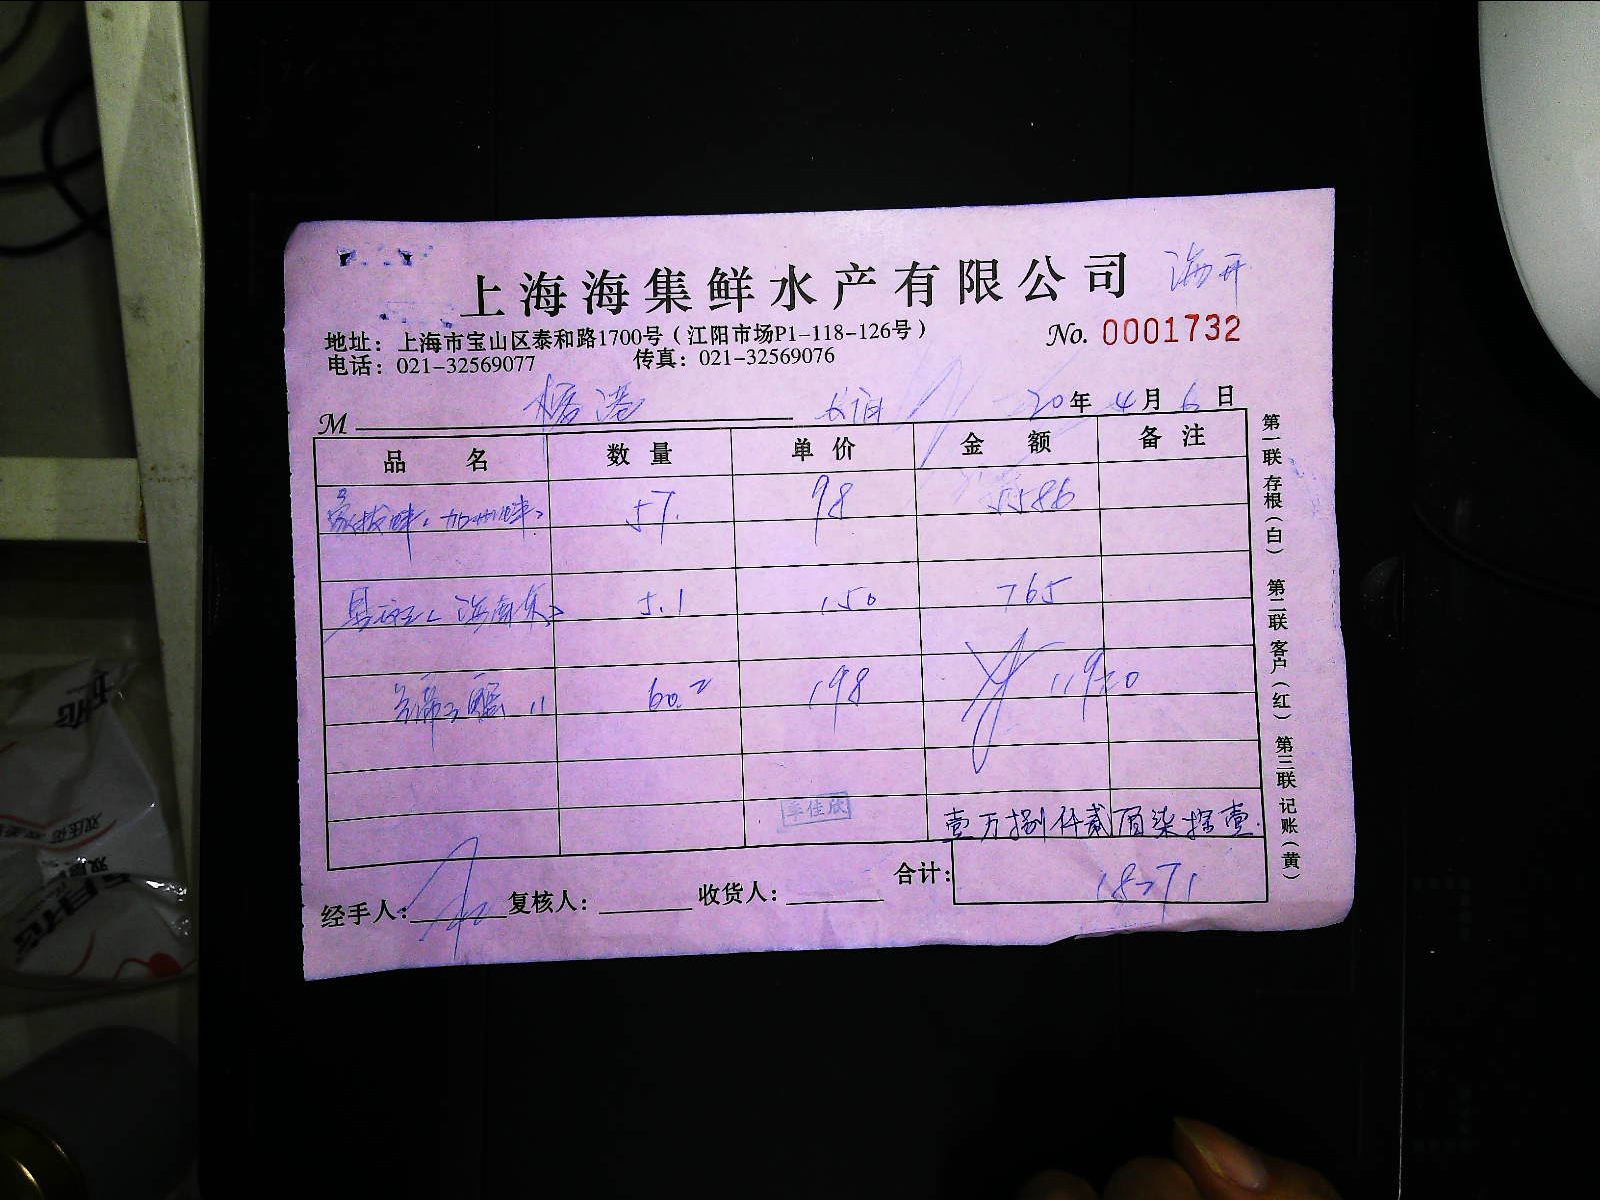 上海海集鲜水产有限公司
地址：上海市宝山区泰和路1700号（江阳市场P1-118-126号）
No. 0001732
电话：021-32569077 传真：021-32569076
M 港 20年4月6日
品名 数量 单价 金额 备注
57. 98 5586
5.1 150 765
60.2 198 11920
李佳欣
壹万捌仟贰百柒拾壹
合计： 18271
经手人： 复核人： 收货人：
第一联 存根（白） 第二联 客户（红） 第三联 记账（黄）